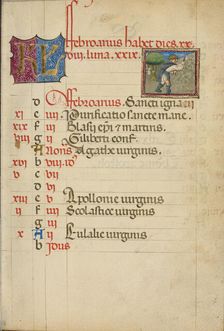 KL Februarius habet dies xx
viii. luna. xxix.
d Februarii. Sancti ignacii
xi e iiii Purificatio sancte marie.
xix f iii Blasii epi et martiris.
viii g ii Giliberti conf.
A Nons Agathe virginis.
xvi b viii id
v c vii
d vi
xiii e v Appollonie virginis
ii f iiii Scolastice virginis
g iii
x A ii Eulalie virginis
b Idus